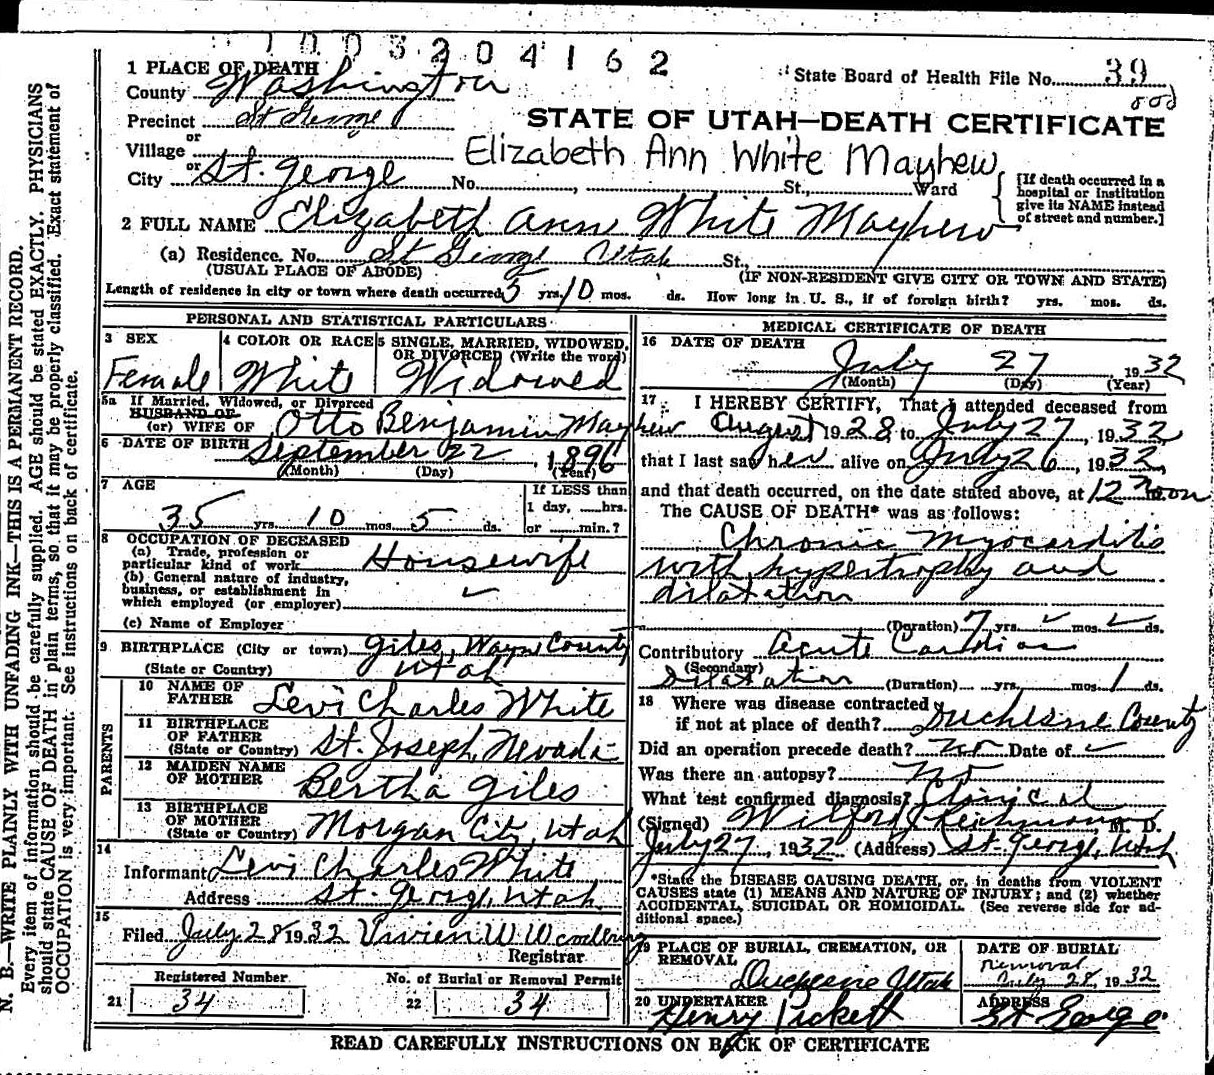 1003204162
1 PLACE OF DEATH
State Board of Health File No. 39
County Washington
Precinct St George
STATE OF UTAH—DEATH CERTIFICATE
or
Village
Elizabeth Ann White Mayhew
or
City St. George No. , St., Ward
[If death occurred in a hospital or institution give its NAME instead of street and number.]
2 FULL NAME Elizabeth Ann White Mayhew
(a) Residence. No. St George Utah St.,
(USUAL PLACE OF ABODE) (IF NON-RESIDENT GIVE CITY OR TOWN AND STATE)
Length of residence in city or town where death occurred 3 yrs. 10 mos. ds. How long in U. S., if of foreign birth? yrs. mos. ds.
PERSONAL AND STATISTICAL PARTICULARS
3 SEX
Female
4 COLOR OR RACE
White
5 SINGLE, MARRIED, WIDOWED, OR DIVORCED (Write the word)
Widowed
5a If Married, Widowed, or Divorced
HUSBAND OF
(or) WIFE OF Otto Benjamin Mayhew
6 DATE OF BIRTH September 22, 1896
(Month) (Day) (Year)
7 AGE
35 yrs. 10 mos. 5 ds.
If LESS than
1 day, hrs.
or min.?
8 OCCUPATION OF DECEASED
(a) Trade, profession or
particular kind of work Housewife
(b) General nature of industry,
business, or establishment in
which employed (or employer)
(c) Name of Employer
9 BIRTHPLACE (City or town) Giles, Wayne County
(State or Country) Utah
PARENTS
10 NAME OF
FATHER Levi Charles White
11 BIRTHPLACE
OF FATHER
(State or Country) St. Joseph, Nevada
12 MAIDEN NAME
OF MOTHER Bertha Giles
13 BIRTHPLACE
OF MOTHER
(State or Country) Morgan City, Utah
14
Informant Levi Charles White
Address St. George, Utah
15
Filed July 28 1932 Vivien W Woodbury
Registrar
Registered Number
21 34
No. of Burial or Removal Permit
22 34
MEDICAL CERTIFICATE OF DEATH
16 DATE OF DEATH
July 27 1932
(Month) (Day) (Year)
17 I HEREBY CERTIFY, That I attended deceased from
August 1928 to July 27, 1932
that I last saw her alive on July 26, 1932,
and that death occurred, on the date stated above, at 12 Noon
The CAUSE OF DEATH* was as follows:
Chronic Myocarditis
with hypertrophy and
dilatation
(Duration) 7 yrs. mos. ds.
Contributory Acute Cardiac
(Secondary)
Dilatation (Duration) yrs. mos. 1 ds.
18 Where was disease contracted
if not at place of death? Duchesne County
Did an operation precede death? no Date of
Was there an autopsy? no
What test confirmed diagnosis? Clinical
(Signed) Wilford J Reichmann, M. D.
July 27, 1932 (Address) St. George, Utah
*State the DISEASE CAUSING DEATH, or, in deaths from VIOLENT
CAUSES state (1) MEANS AND NATURE OF INJURY; and (2) whether
ACCIDENTAL, SUICIDAL OR HOMICIDAL. (See reverse side for ad-
ditional space.)
19 PLACE OF BURIAL, CREMATION, OR
REMOVAL
Duchesne Utah
DATE OF BURIAL
Removal
July 28, 1932
20 UNDERTAKER
Henry Pickett
ADDRESS
St George
READ CAREFULLY INSTRUCTIONS ON BACK OF CERTIFICATE
N. B.—WRITE PLAINLY WITH UNFADING INK—THIS IS A PERMANENT RECORD.
Every item of information should be carefully supplied. AGE should be stated EXACTLY. PHYSICIANS
should state CAUSE OF DEATH in plain terms, so that it may be properly classified. Exact statement of
OCCUPATION is very important. See instructions on back of certificate.